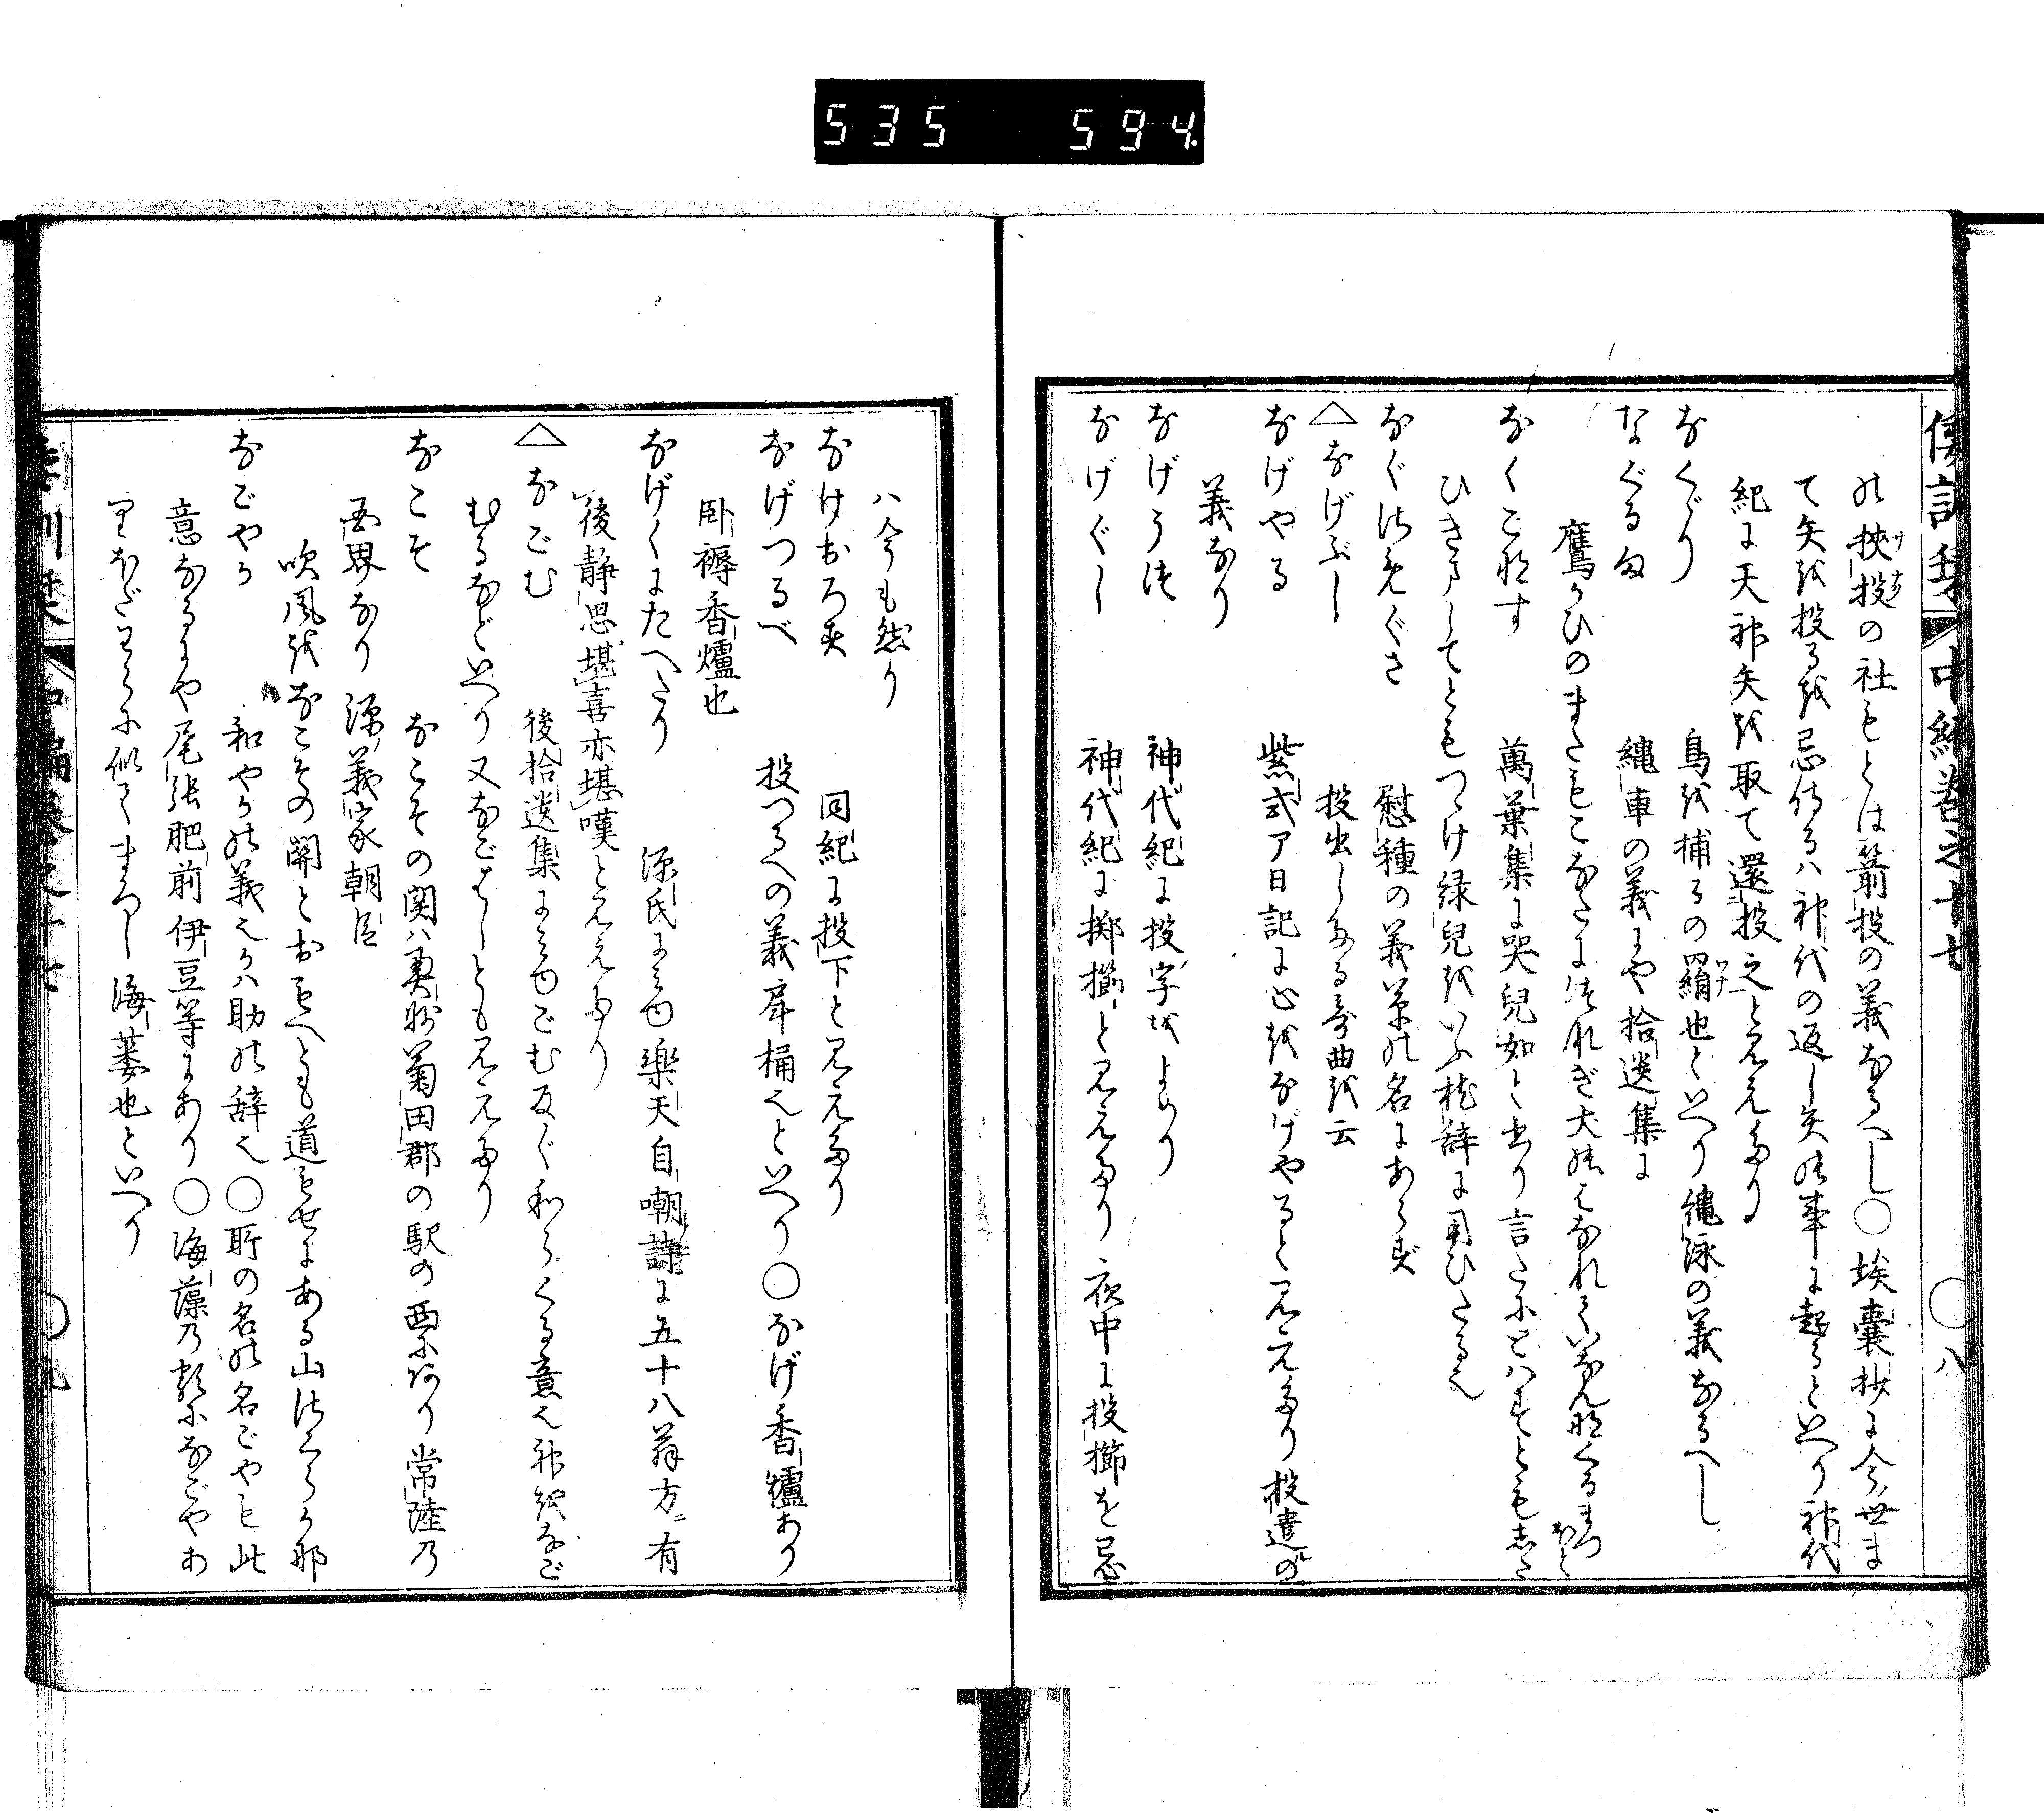 535 594.
倭訓栞 中編巻之十七 ○八
の挾投の社もとは箭投の義なるへし○埃嚢抄に今世ま
て矢を投るを忌侍るハ神代の返し矢の事に起ると いへり 神代
紀に天神矢を取て還投之と見えたり
なくゞり 鳥を捕るの羂也といへり 縄泳の義なるへし
なぐるま 縄車の義にや拾遺集に
鷹かひのまたもこなたにつなぎ犬のはなれていなんなくるまつほと
なくこなす 萬葉集に哭兒如と書り言たにとハすともした
ひきましてともつゝけ緑兒をいふ枕辞に用ひたる也
なぐさめぐさ 慰種の義草の名にあらず
△なげぶし 投出したる哥曲を云
なげやる 紫式ア日記に心をなげやると見えたり 投遣の
義なり
なげうつ 神代紀に投字をよめり
なげぐし 神代紀に擲櫛と見えたり 夜中に投櫛を忌
ハ今も然り
なけおろす 同紀に投下と見えたり
なげつるべ 投つるへの義戽桶也といへり○なげ香爐あり
臥褥香爐也
なげくにたへたり 源氏に見ゆ樂天自嘲詩に五十八翁方有
後静思堪喜亦堪嘆と見えたり
△なごむ 後拾遺集に見ゆごむ反ぐ和らくる意也神をなご
むるなどいへり又なごはしとも見えたり
なこそ なこその関ハ奥州菊田郡の駅の西にあり常陸乃
西界なり 源義家朝臣
吹風をなこその関とおもへとも道もせにある山さくらか那
なごやか 和やかの義也かハ助の辞也○所の名の名ごやも此
意なるにや尾張肥前伊豆等にあり○海藻乃類になごやあ
海蔞也といへり